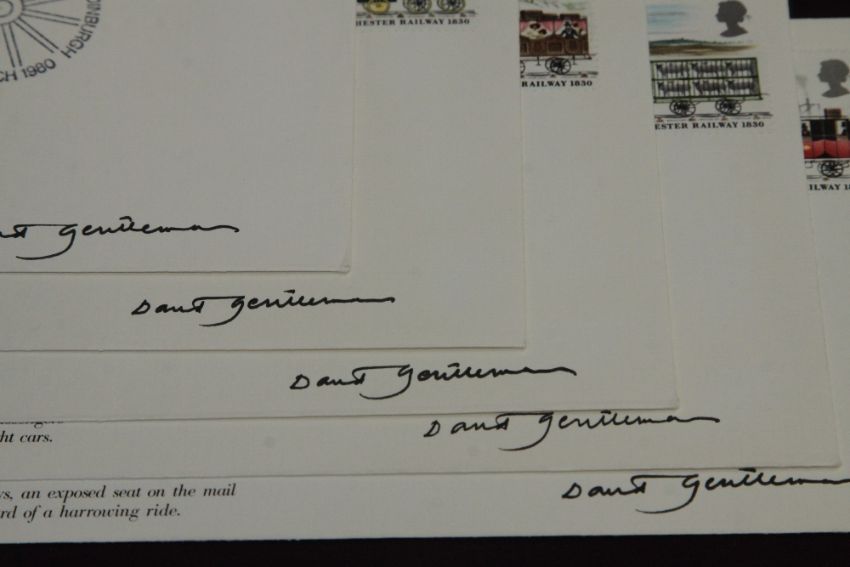 DINBURGH
CH 1980
HESTER RAILWAY 1830
RAILWAY 1830
ESTER RAILWAY 1830
ILWAY 18
Gentleman
David Gentleman
David Gentleman
David Gentleman
David Gentleman
ht cars.
ys, an exposed seat on the mail
rd of a harrowing ride.